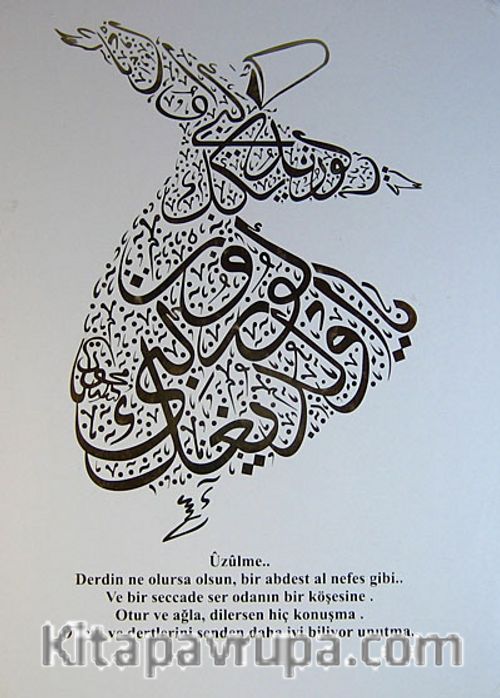 يا أولديغك كبي
كورون
Üzülme..
Derdin ne olursa olsun, bir abdest al nefes gibi..
Ve bir seccade ser odanın bir köşesine .
Otur ve ağla, dilersen hiç konuşma .
ve dertlerini senden daha iyi biliyor unutma.
kitapavrupa.com